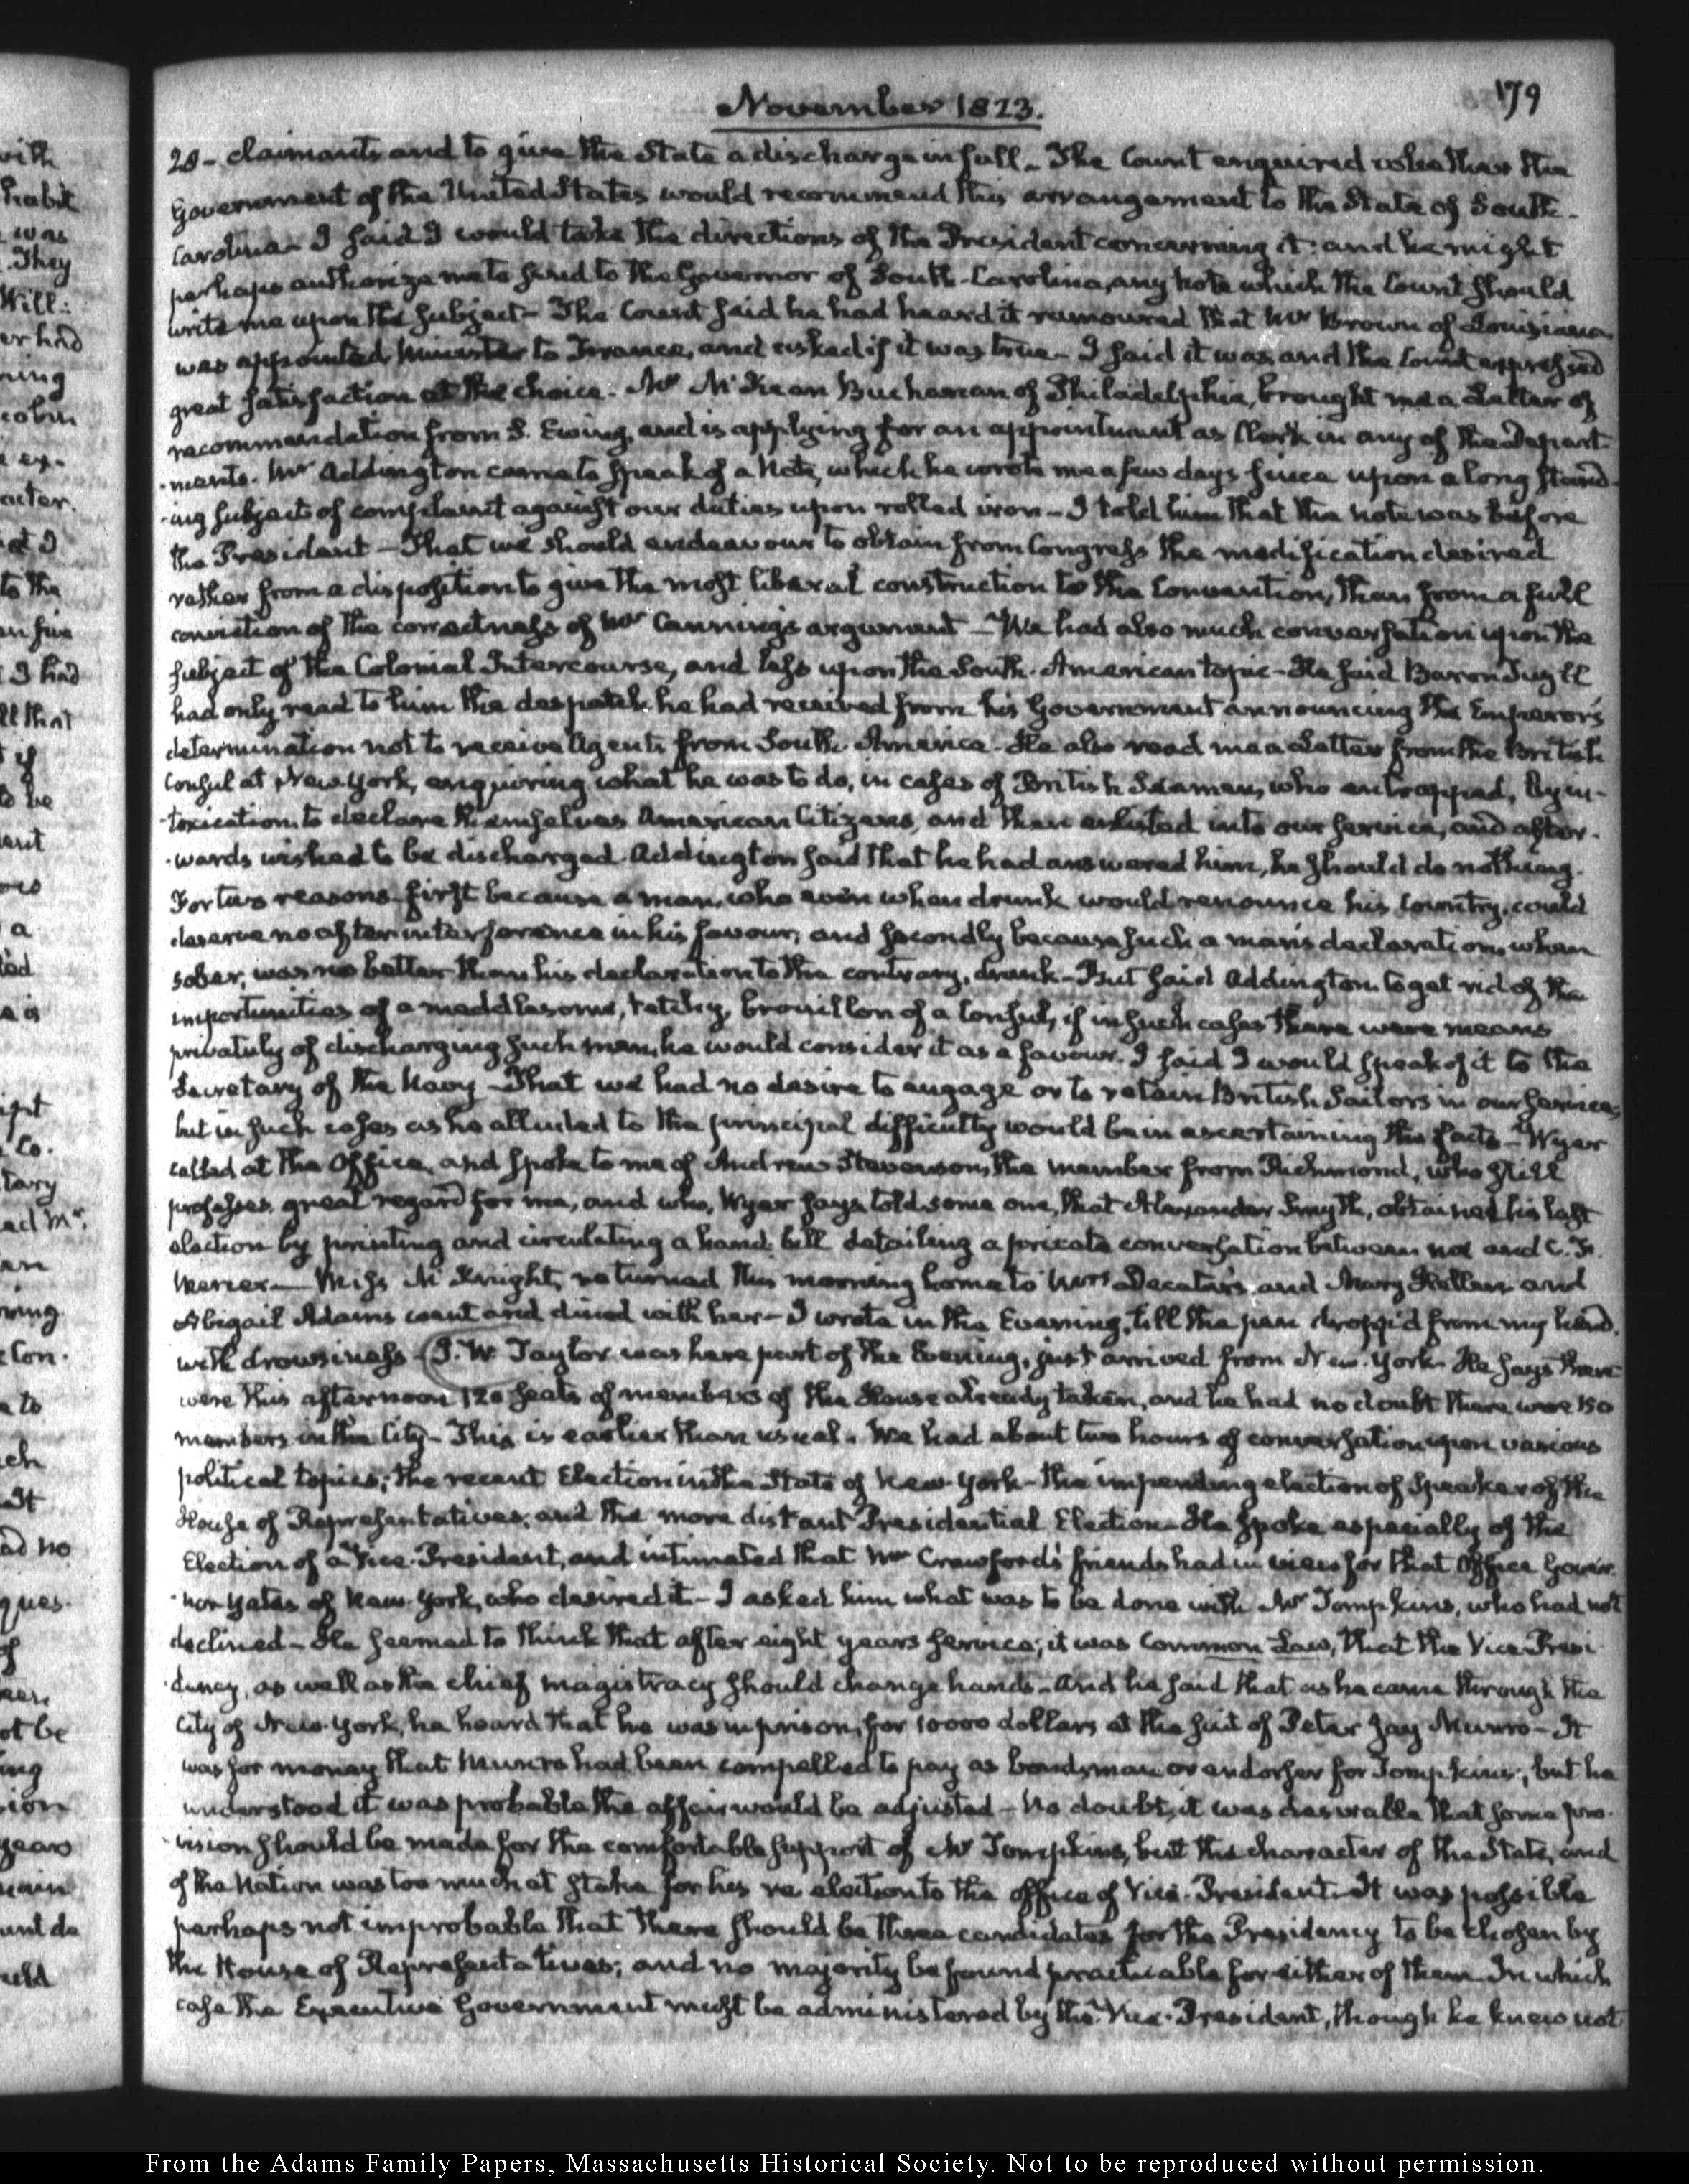 179
November 1823.
28- claimants and to give the State a discharge in full- The Count enquired whether the
Government of the United States would recommend this arrangement to the State of South-
Carolina- I said I would take the directions of the President concerning it: and he might
perhaps authorize me to send to the Governor of South-Carolina, any note which the Count should
write me upon the subject- The Count said he had heard it rumoured that Mr Brown of Louisiana
was appointed Minister to France, and asked if it was true- I said it was, and the Count expressed
great satisfaction at the choice. Mr McKean Buchanan of Philadelphia, brought me a Letter of
recommendation from S. Ewing, and is applying for an appointment as Clerk in any of the Depart-
-ments. Mr Addington came to speak of a Note, which he wrote me a few days since upon a long stand-
-ing subject of complaint against our duties upon rolled iron- I told him that the note was before
the President- That we should endeavour to obtain from Congress the modification desired
rather from a disposition to give the most liberal construction to the Convention, than from a full
conviction of the correctness of Mr Canning's argument- We had also much conversation upon the
subject of the Colonial Intercourse, and less upon the South-American topic- He said Baron Tuyll
had only read to him the despatch he had received from his Government announcing the Emperor's
determination not to receive Agents from South-America. He also read me a Letter from the British
Consul at New-York, enquiring what he was to do, in cases of British Seamen, who entrapped, by in-
-toxication, to declare themselves American Citizens, and then enlisted into our service, and after-
-wards wished to be discharged. Addington said that he had answered him, he should do nothing.
For two reasons first because a man, who even when drunk would renounce his Country, could
deserve no after interference in his favour; and secondly because such a man's declaration, when
sober, was no better than his declaration to the contrary, drunk- But said Addington to get rid of the
importunities of a meddlesome, tetchy, brouillon of a Consul, if in such cases there were means
privately of discharging such men, he would consider it as a favour. I said I would speak of it to the
Secretary of the Navy- That we had no desire to engage or to retain British Sailors in our service;
but in such cases as he alluded to the principal difficulty would be in ascertaining the facts- Wyer
called at the Office, and spoke to me of Andrew Stevenson, the member from Richmond, who still
professes great regard for me, and who, Wyer says, told some one, that Alexander Smyth, obtained his last
election by printing and circulating a hand bill detailing a private conversation between me and C. F.
Mercer- Miss McKnight, returned this morning home to Mrs Decatur's, and Mary Hellen and
Abigail Adams went and dined with her- I wrote in the Evening, till the pen dropp'd from my hand,
with drowsiness- J. W. Taylor was here part of the Evening, just arrived from New-York. He says there
were this afternoon 120 seats of members of the House already taken, and he had no doubt there were 150
members in the City- This is earlier than usual. We had about two hours of conversation upon various
political topics; the recent Election in the State of New-York- the impending election of Speaker of the
House of Representatives; and the more distant Presidential Election- He spoke especially of the
Election of a Vice-President, and intimated that Mr Crawford's friends had in view for that Office Gover-
-nor Yates of New-York, who desired it- I asked him what was to be done with Mr Tompkins, who had not
declined- He seemed to think that after eight years service; it was Common Law, that the Vice-Presi-
-dency, as well as the chief magistracy should change hands- And he said that as he came through the
City of New-York, he heard that he was in prison, for 10000 dollars at the suit of Peter Jay Munro- It
was for money that Munro had been compelled to pay as bondsman or endorser for Tompkins; but he
understood it was probable the affair would be adjusted- No doubt, it was desirable that some pro-
-vision should be made for the comfortable support of Mr Tompkins, but the character of the State, and
of the Nation was too much at stake for his re election to the office of Vice-President. It was possible
perhaps not improbable that there should be three candidates for the Presidency to be chosen by
the House of Representatives; and no majority be found practicable for either of them- In which
case the Executive Government must be administered by the Vice-President, though he knew not
From the Adams Family Papers, Massachusetts Historical Society. Not to be reproduced without permission.